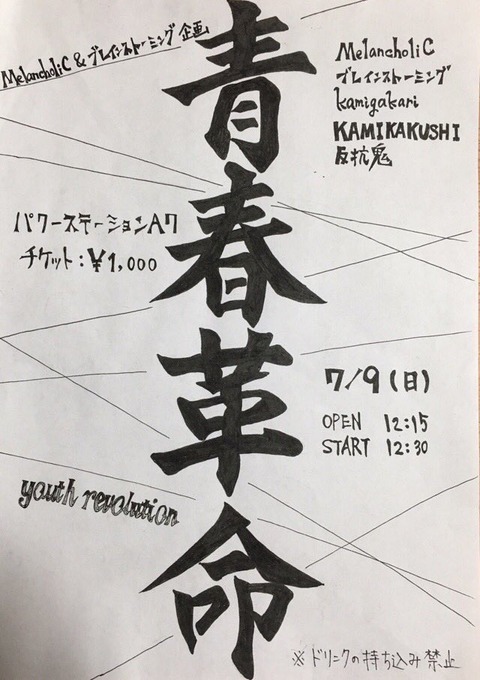 MelancholiC & ブレインストーミング 企画
青春革命
MelancholiC
ブレインストーミング
kamigakari
KAMIKAKUSHI
反抗鬼
パワーステーションA7
チケット:¥1,000
7/9(日)
OPEN 12:15
START 12:30
youth revolution
※ドリンクの持ち込み禁止